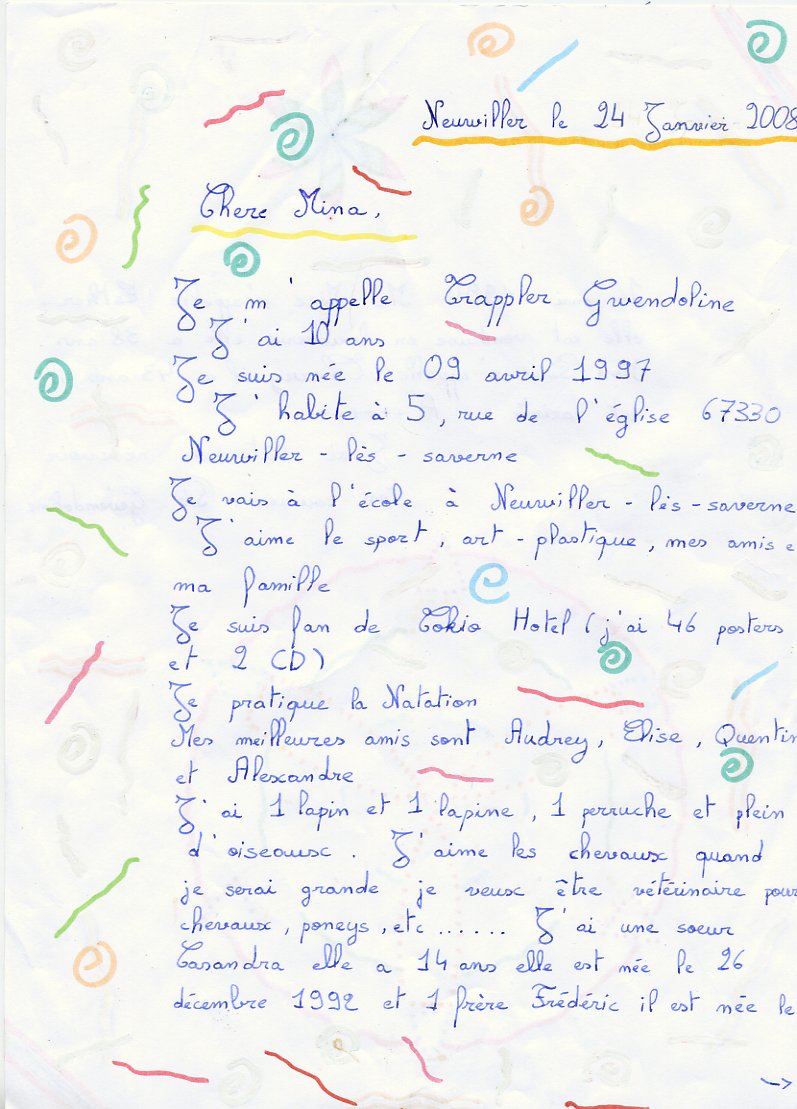 Neuwiller le 24 Janvier 2008
Chere Mina,
Je m'appelle Trappler Gwendoline
J'ai 10 ans
Je suis née le 09 avril 1997
J'habite à 5, rue de l'église 67330
Neuwiller - lès - saverne
Je vais à l'école à Neuwiller - lès - saverne
J'aime le sport, art - plastique, mes amis e
ma famille
Je suis fan de Tokio Hotel (j'ai 46 posters
et 2 CD)
Je pratique la Natation
Mes meilleures amis sont Audrey, Elise, Quentin
et Alexandre
J'ai 1 lapin et 1 lapine, 1 perruche et plein
d'oiseaux. J'aime les chevaux quand
je serai grande je veux être vétérinaire pour
chevaux, poneys, etc...... J'ai une soeur
Casandra elle a 14 ans elle est née le 26
décembre 1992 et 1 frère Frédéric il est née le
->